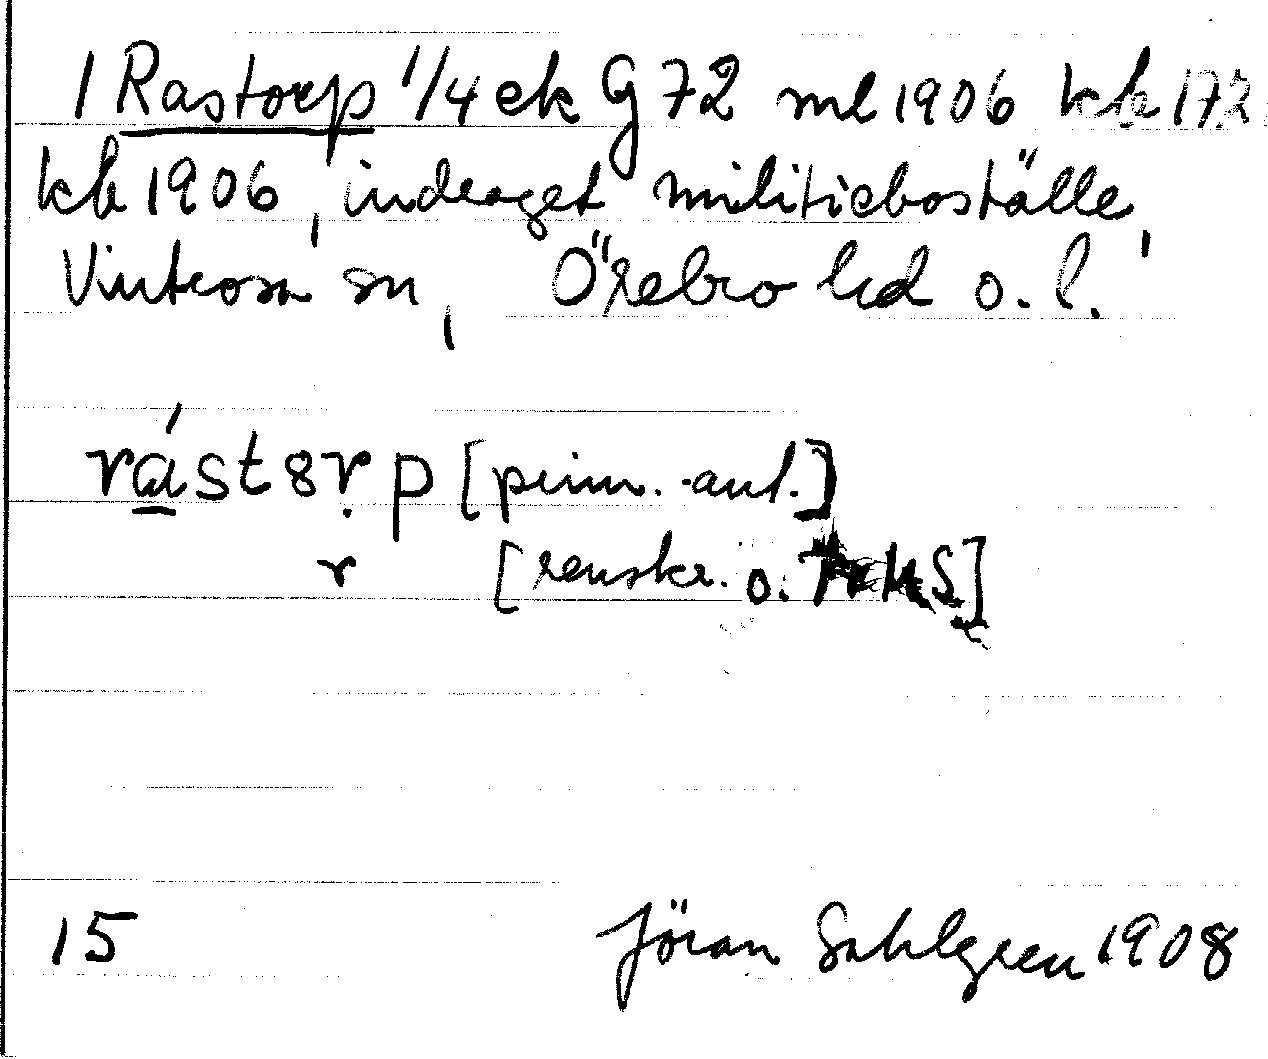 1 Rastorp 1/4 ek G 72 ml 1906 kk 172
kb 1906, indraget militieboställe,
Vintrosa sn, Örebro hd o. l.
rást8ṛp [pinn.-ant.]
r [renskr. o.
15 Jöran Sahlgren 1908